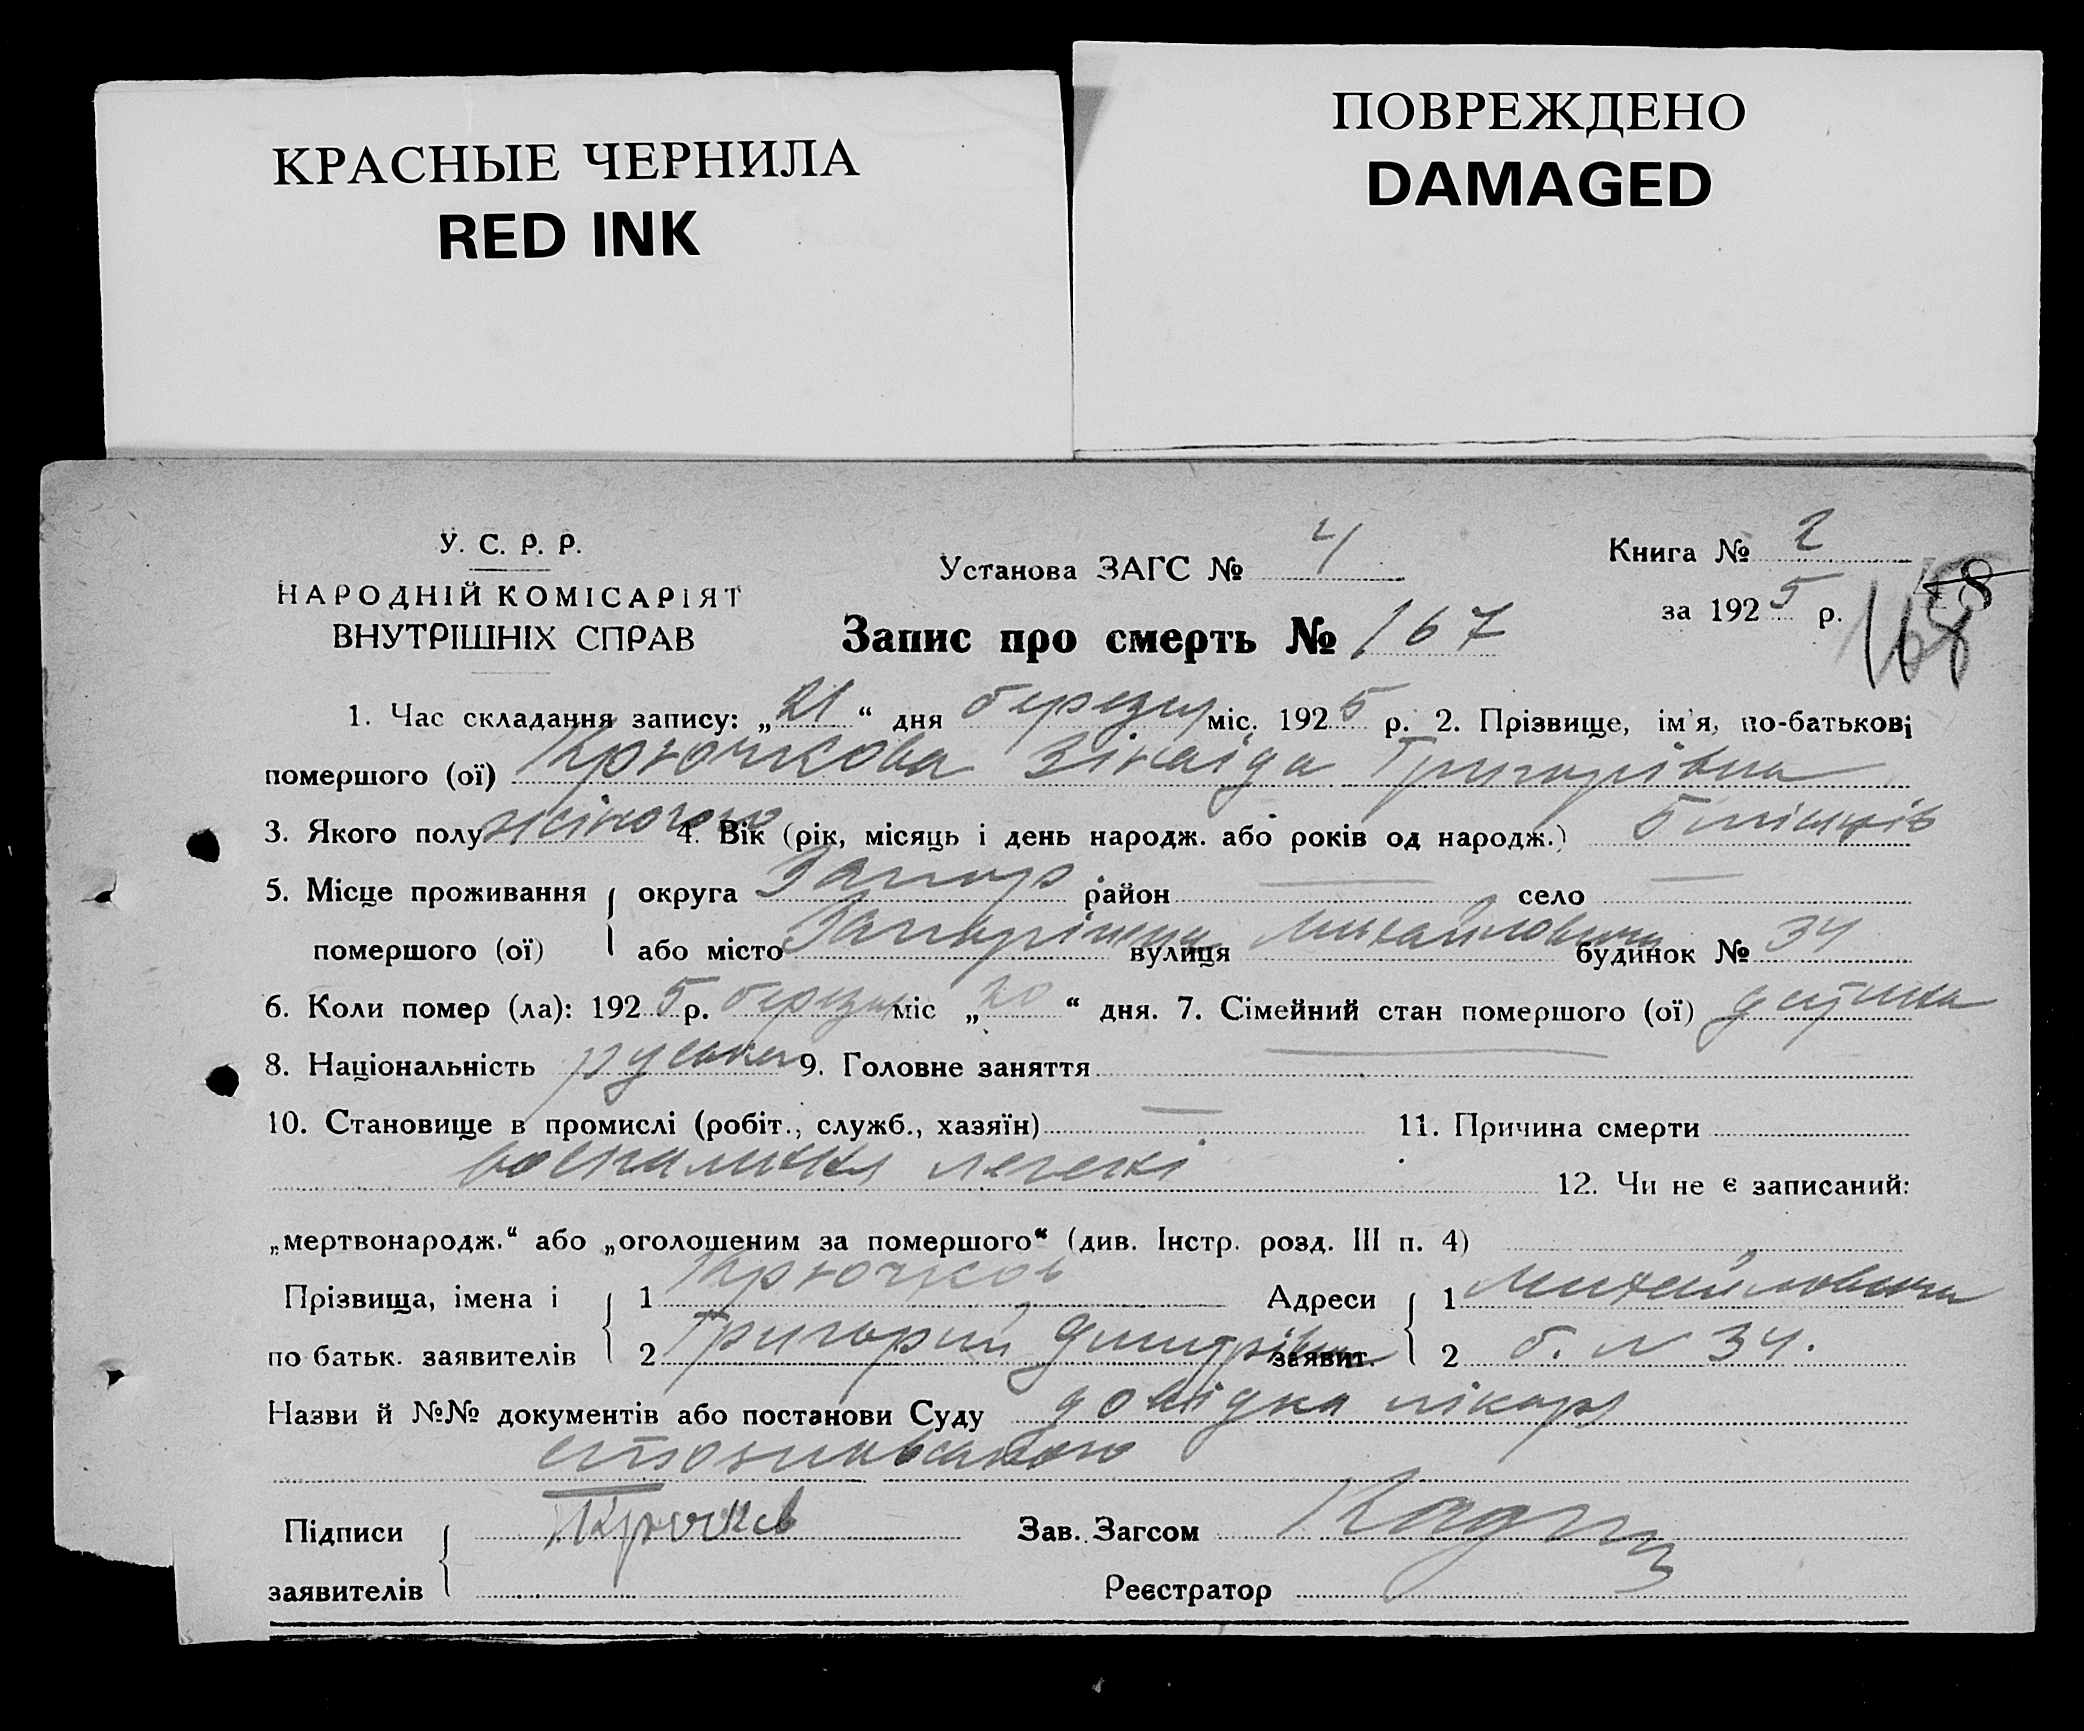 КРАСНЫЕ ЧЕРНИЛА
RED INK
ПОВРЕЖДЕНО
DAMAGED
У. С. Р. Р.
НАРОДНІЙ КОМІСАРІЯТ
ВНУТРІШНІХ СПРАВ
Установа ЗАГС № 4
Книга № 2
за 1925 р.
168
Запис про смерть № 167
1. Час складання запису: „21“ дня березня міс. 1925 р. 2. Прізвище, ім'я, по-батькові
помершого (ої) Крючкова Зінаіда Григорівна
3. Якого полу жіночого 4. Вік (рік, місяць і день народж. або років од народж.) 5 місяців
5. Місце проживання округа Запор район — село —
помершого (ої) або місто Запоріжжя вулиця Михайловська будинок № 34
6. Коли помер (ла): 1925 р. березня міс „20“ дня. 7. Сімейний стан помершого (ої) дитина
8. Національність руська 9. Головне заняття —
10. Становище в промислі (робіт., служб., хазяїн) — 11. Причина смерти
воспалення легені 12. Чи не є записаний:
„мертвонародж.“ або „оголошеним за помершого“ (див. Інстр. розд. III п. 4)
Прізвища, імена і 1 Крючков Адреси 1 Михайловська
по батьк. заявителів 2 Григорий Дмитрівич заявит. 2 б. № 34.
Назви й №№ документів або постанови Суду довідка лікаря
Підписи Крючков Зав. Загсом
заявителів Реєстратор